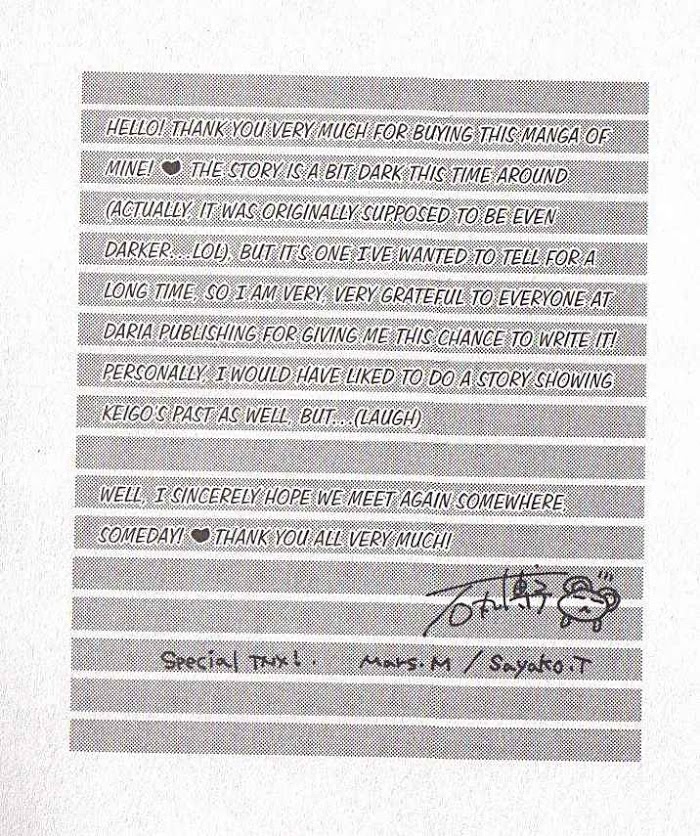 HELLO! THANK YOU VERY MUCH FOR BUYING THIS MANGA OF
MINE! ♥ THE STORY IS A BIT DARK THIS TIME AROUND
(ACTUALLY, IT WAS ORIGINALLY SUPPOSED TO BE EVEN
DARKER...LOL), BUT IT'S ONE I'VE WANTED TO TELL FOR A
LONG TIME, SO I AM VERY, VERY GRATEFUL TO EVERYONE AT
DARIA PUBLISHING FOR GIVING ME THIS CHANCE TO WRITE IT!
PERSONALLY, I WOULD HAVE LIKED TO DO A STORY SHOWING
KEIGO'S PAST AS WELL, BUT...(LAUGH)
WELL, I SINCERELY HOPE WE MEET AGAIN SOMEWHERE,
SOMEDAY! ♥ THANK YOU ALL VERY MUCH!
Special TNX!. Mars.M / Sayako.T